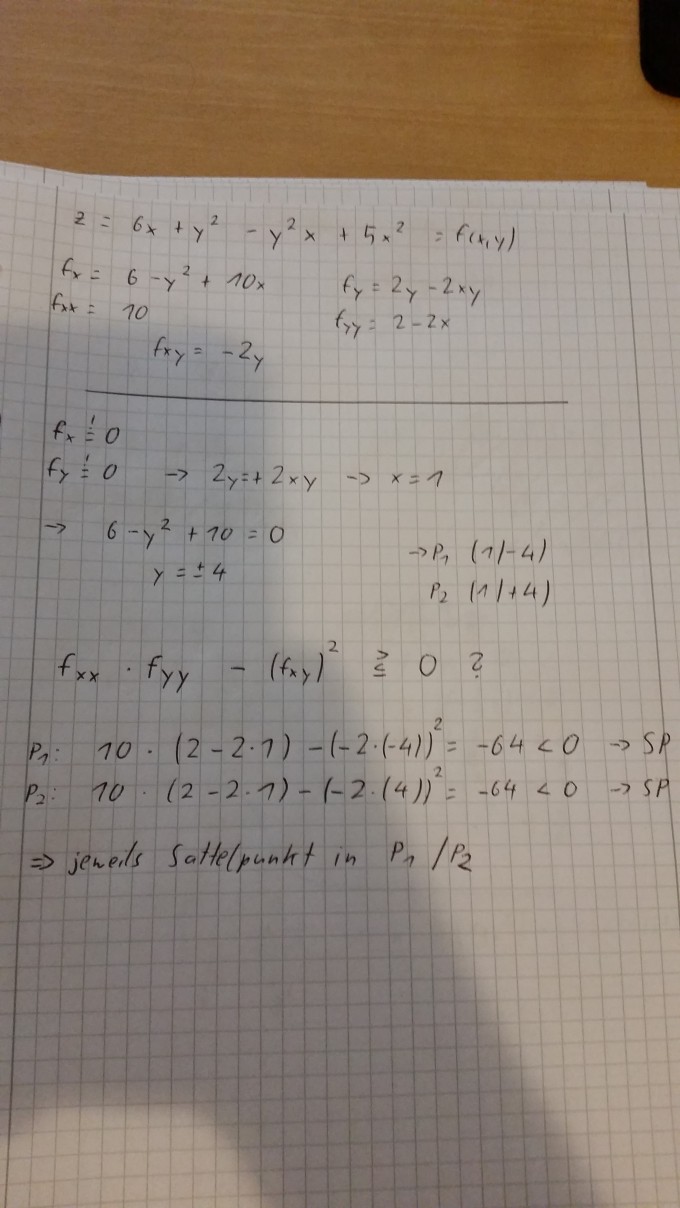 z = 6x + y² - y²x + 5x² = f(x,y)
fx = 6 - y² + 10x fy = 2y - 2xy
fxx = 10 fyy = 2 - 2x
fxy = -2y
fx != 0
fy != 0 -> 2y = + 2xy -> x = 1
-> 6 - y² + 10 = 0
y = ± 4
-> P1 (1/-4)
P2 (1/+4)
fxx · fyy - (fxy)² ⪌ 0 ?
P1: 10 · (2 - 2·1) - (-2·(-4))² = -64 < 0 -> SP
P2: 10 · (2 - 2·1) - (-2·(4))² = -64 < 0 -> SP
=> jeweils Sattelpunkt in P1 / P2